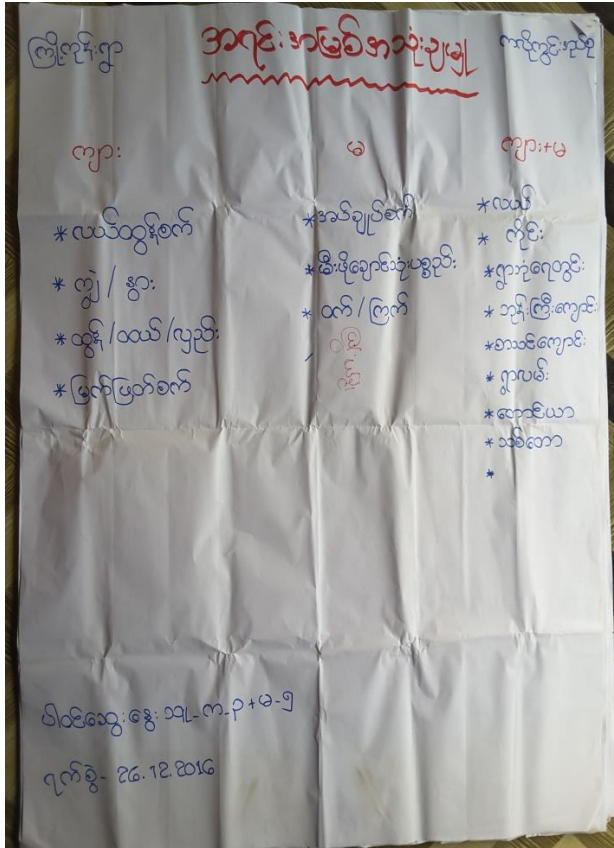 ကြို့ကုန်းရွာ
အရင်းအမြစ်အသုံးချမှု
ကျား
မ
ကျား+မ
* လယ်ထွန်စက်
* ကျွဲ / နွား
* ထွန် / ထယ် / လှည်း
* မြက်ဖြတ်စက်
* အပ်ချုပ်စက်
* မီးဖိုချောင်သုံးပစ္စည်း
* ဝက် / ကြက်
* လယ်
* ကိုင်း
* ရွာဘုံရေတွင်း
* ဘုန်းကြီးကျောင်း
* စာသင်ကျောင်း
* ရွာလမ်း
* တောင်ယာ
* သစ်တော
*
ပါဝင်ဆွေးနွေးသူ - က - ၃ + မ - ၅
ရက်စွဲ - 26.12.2016